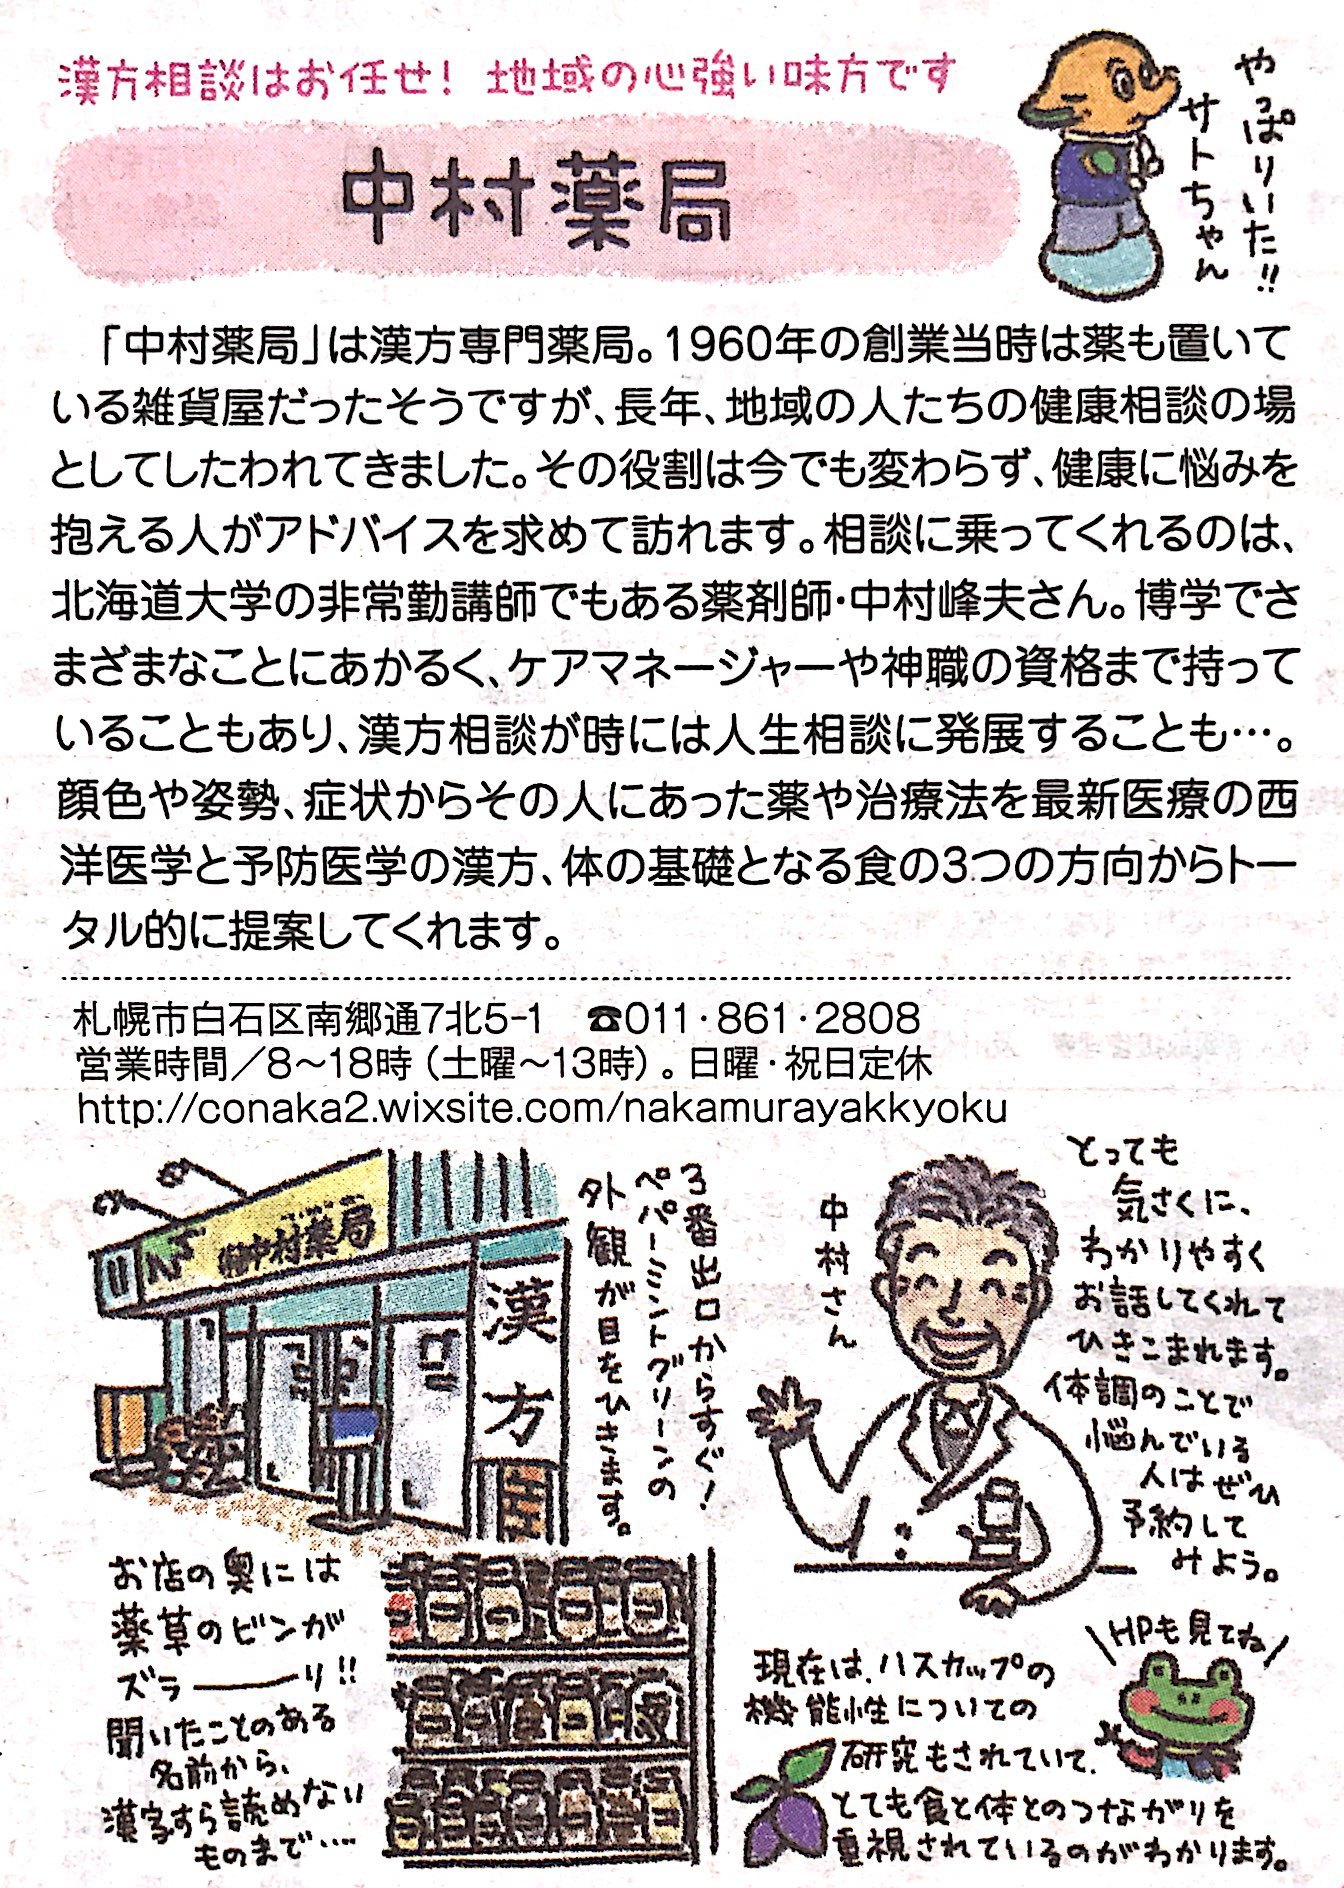 漢方相談はお任せ! 地域の心強い味方です
中村薬局
やっぱりいた!!
サトちゃん
「中村薬局」は漢方専門薬局。1960年の創業当時は薬も置いて
いる雑貨屋だったそうですが、長年、地域の人たちの健康相談の場
としてしたわれてきました。その役割は今でも変わらず、健康に悩みを
抱える人がアドバイスを求めて訪れます。相談に乗ってくれるのは、
北海道大学の非常勤講師でもある薬剤師・中村峰夫さん。博学でさ
まざまなことにあかるく、ケアマネージャーや神職の資格まで持って
いることもあり、漢方相談が時には人生相談に発展することも…。
顔色や姿勢、症状からその人にあった薬や治療法を最新医療の西
洋医学と予防医学の漢方、体の基礎となる食の3つの方向からトー
タル的に提案してくれます。
札幌市白石区南郷通7北5-1 ☎011・861・2808
営業時間/8〜18時(土曜〜13時)。日曜・祝日定休
http://conaka2.wixsite.com/nakamurayakkyoku
中村薬局
漢方
3番出口からすぐ!
ペパーミントグリーンの
外観が目をひきます。
中村さん
とっても
気さくに、
わかりやすく
お話してくれて
ひきこまれます。
体調のことで
悩んでいる
人はぜひ
予約して
みよう。
お店の奥には
薬草のビンが
ズラーーーリ!!
聞いたことのある
名前から、
漢字すら読めない
ものまで…
HPも見てね
現在は、ハスカップの
機能性についての
研究もされていて、
とても食と体とのつながりを
重視されているのがわかります。